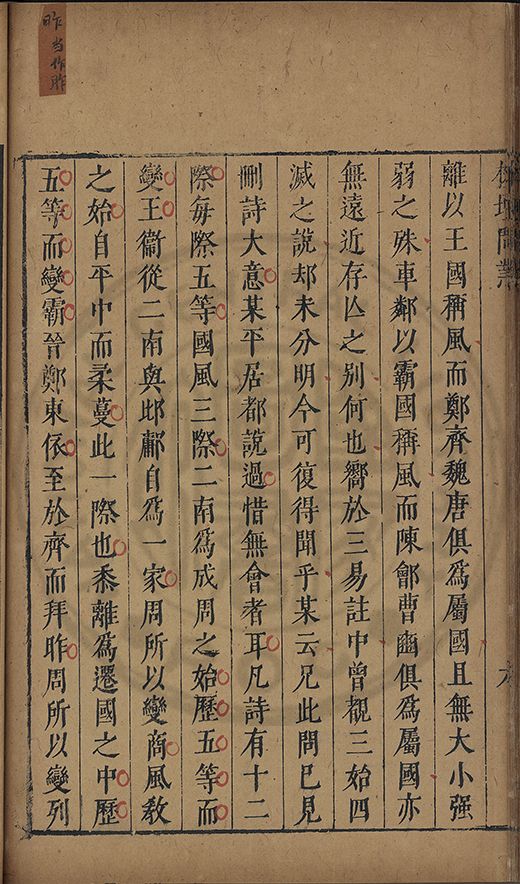 昨当作胙
榕壇問業
離以王國稱風而鄭齊魏唐俱爲屬國且無大小强
弱之殊車鄰以霸國稱風而陳鄶曹豳俱爲屬國亦
無遠近存亾之别何也嚮於三易註中曾觀三始四
滅之說却未分明今可復得聞乎某云兄此問已見
刪詩大意某平居都說過惜無會者耳凡詩有十二
際每際五等國風三際二南爲成周之始歷五等而
變王衞從二南與邶鄘自爲一家周所以變商風敎
之始自平中而柔蔓此一際也黍離爲遷國之中歷
五等而變霸晉鄭東依至於齊而拜昨周所以變列